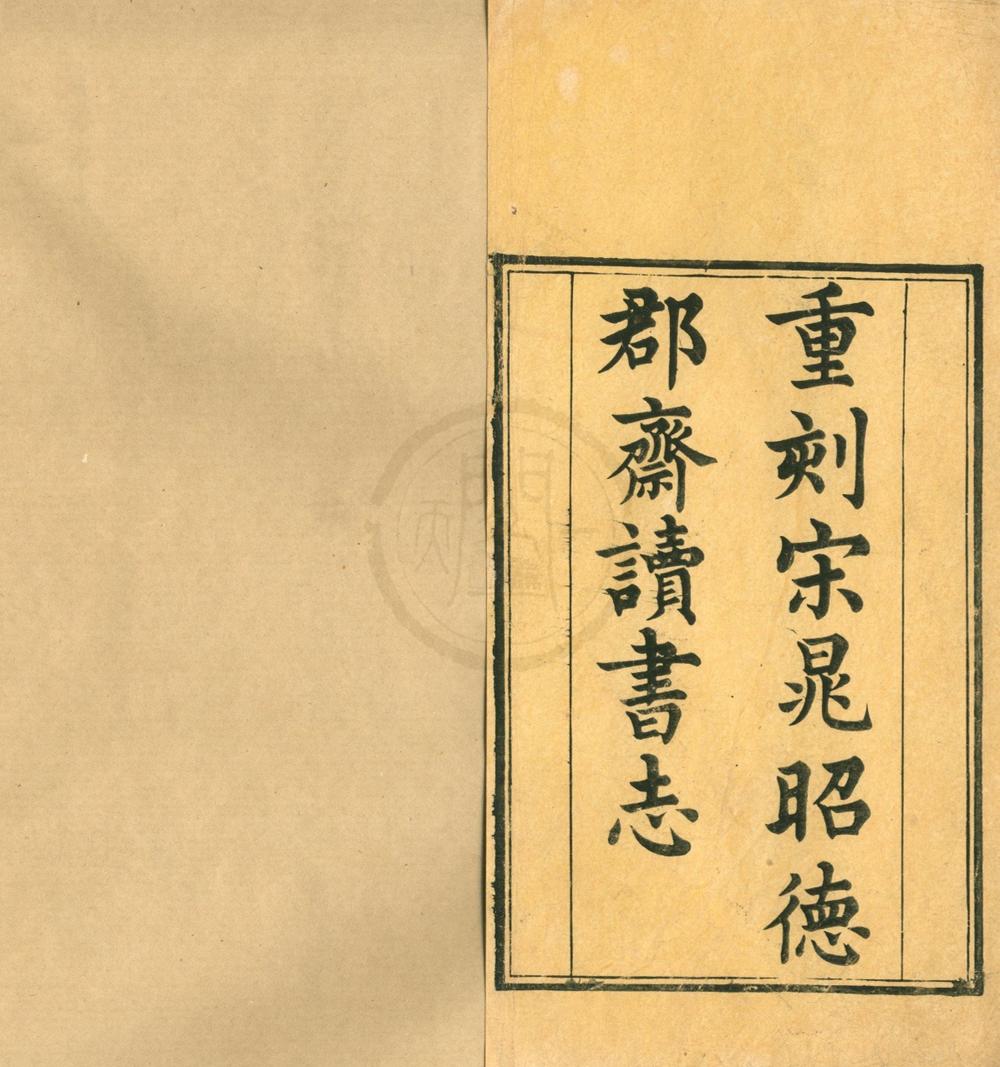 重刻宋晁昭德
郡齋讀書志